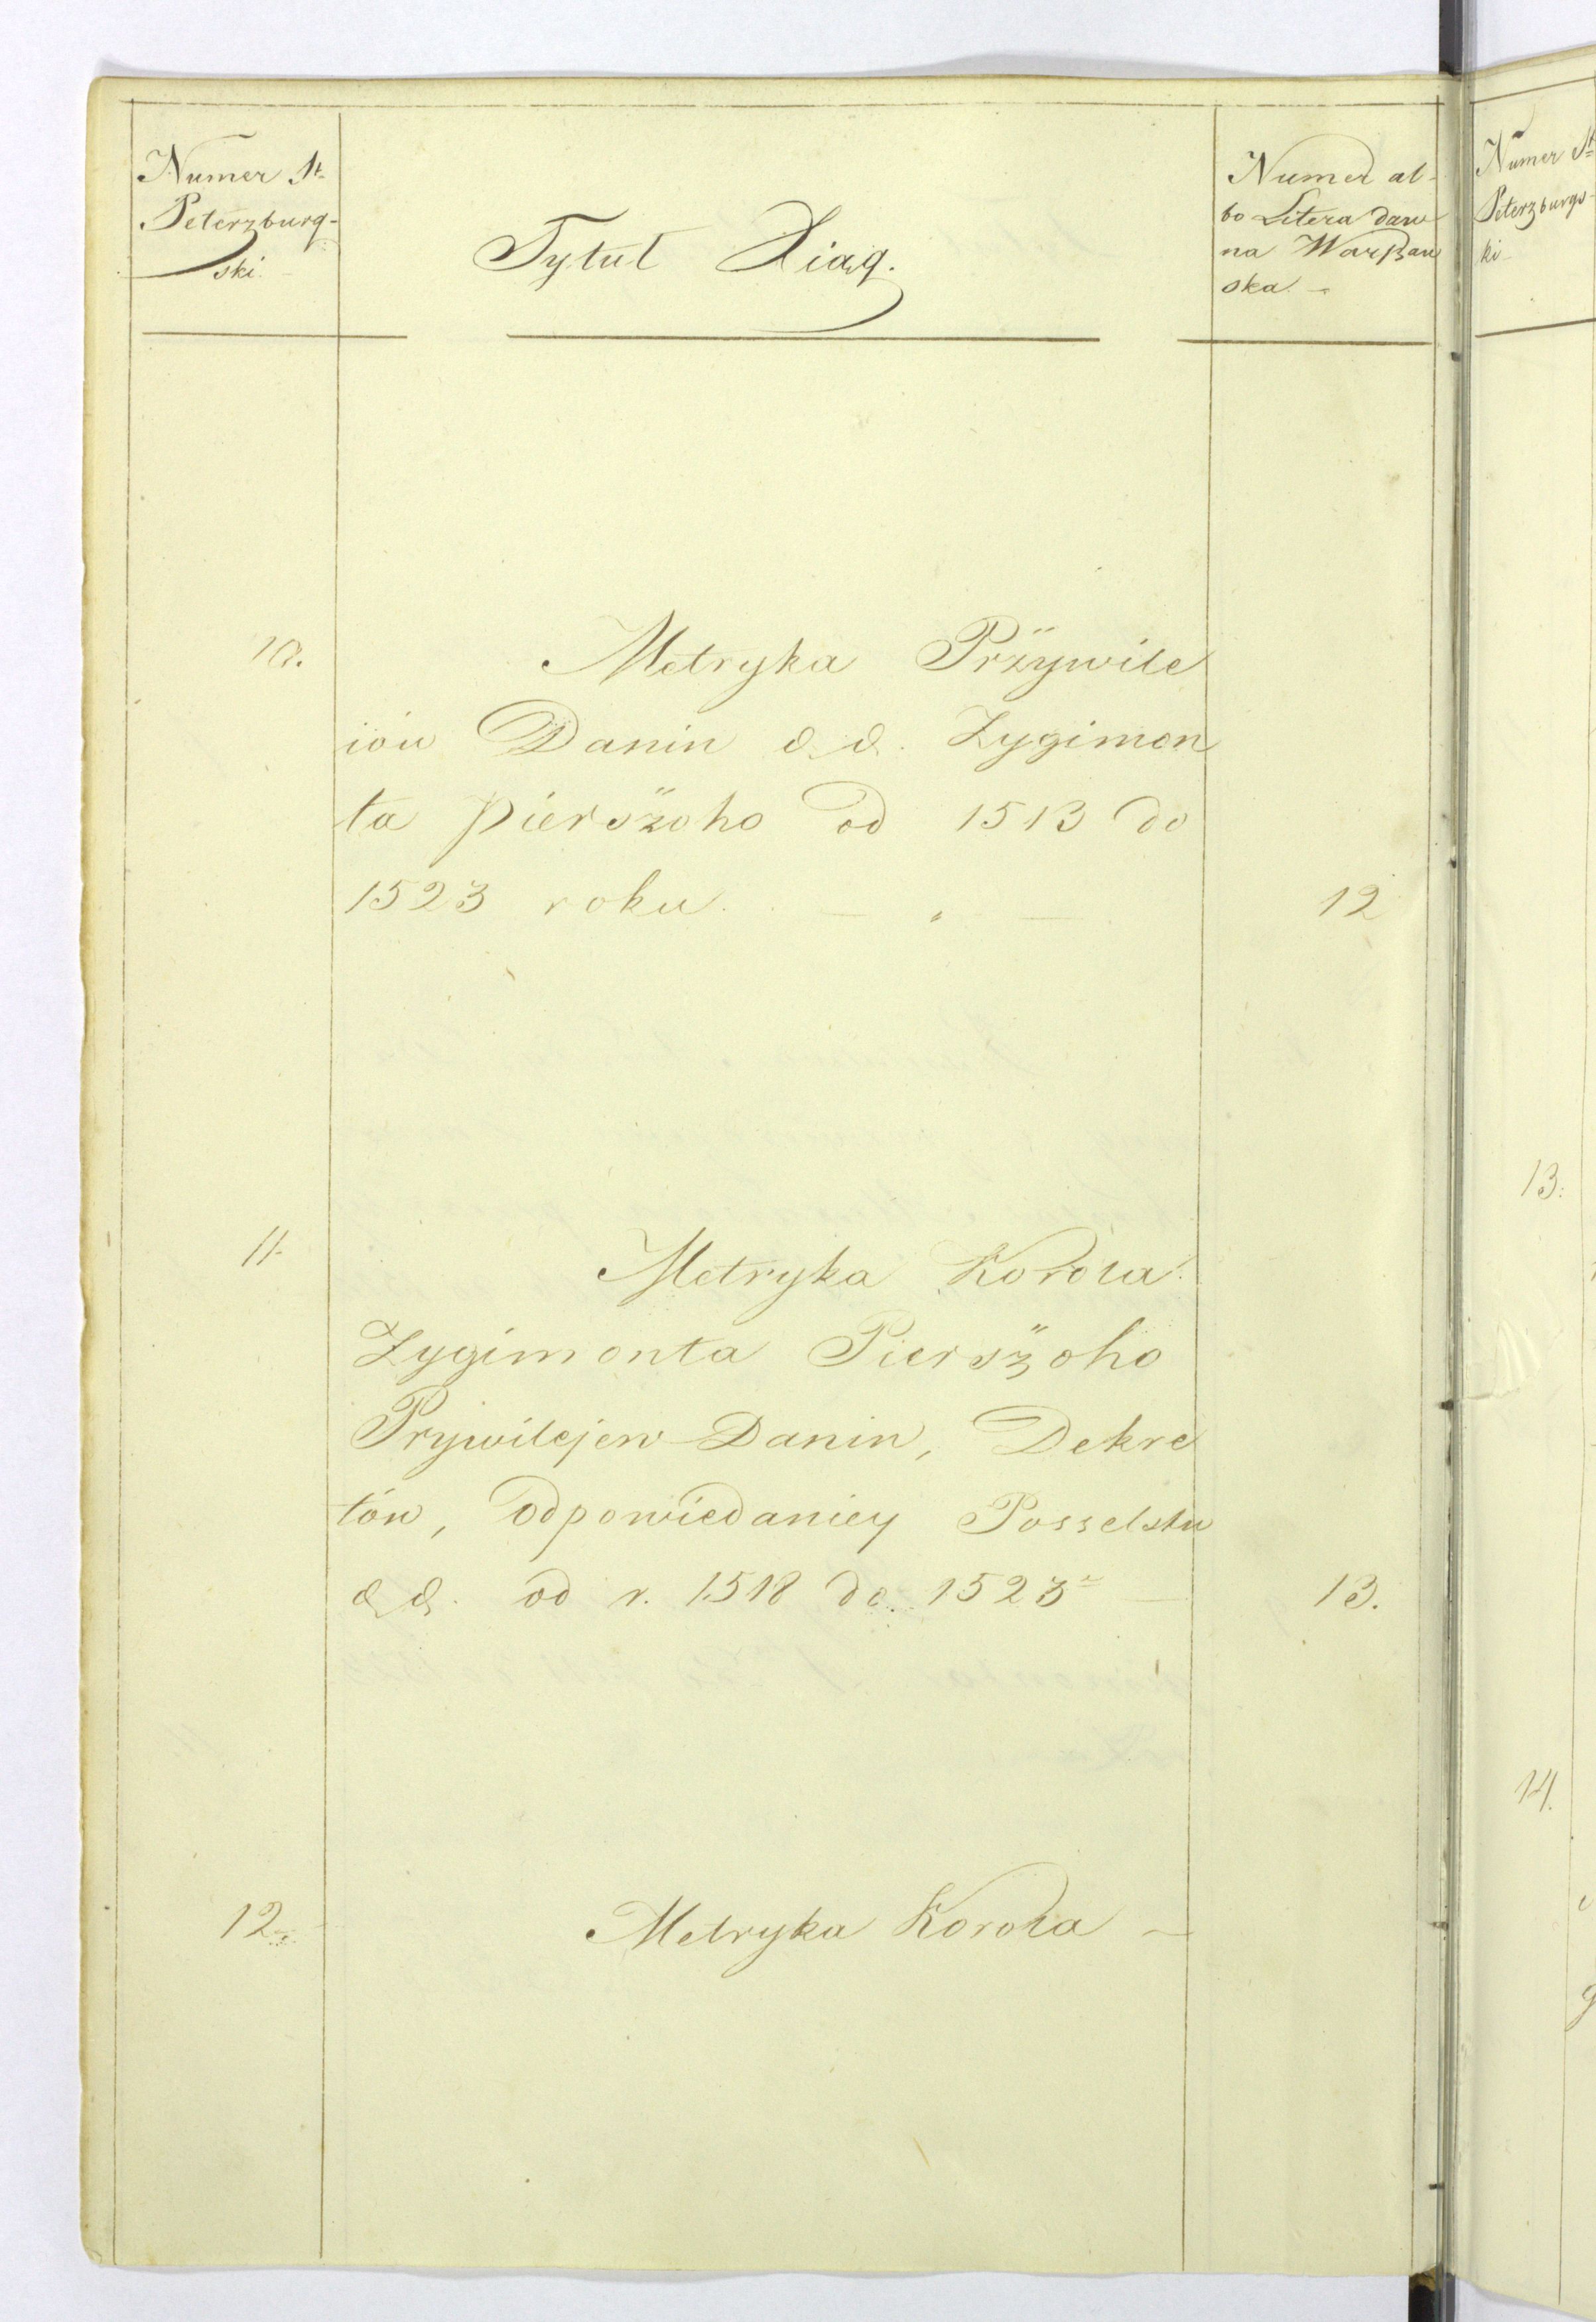 Numer St.
Peterzburg-
ski
Tytuł Xiąg.
Numer al-
bo Litera daw
na Warszaw
ska. -
10. Metryka Przywile
iów Danin &.&. Zygimon
ta pierszoho od 1513 do
1523 roku. 12
11. Metryka Korola
Zygimonta Pierszoho
Prywilejew Danin, Dekre
tów, Odpowiedaniey Posselstw
&.&. od r. 1518 do 1523 13.
12. Metryka Korola -
Numer St
Peterzburgs-
ki
13.
14.